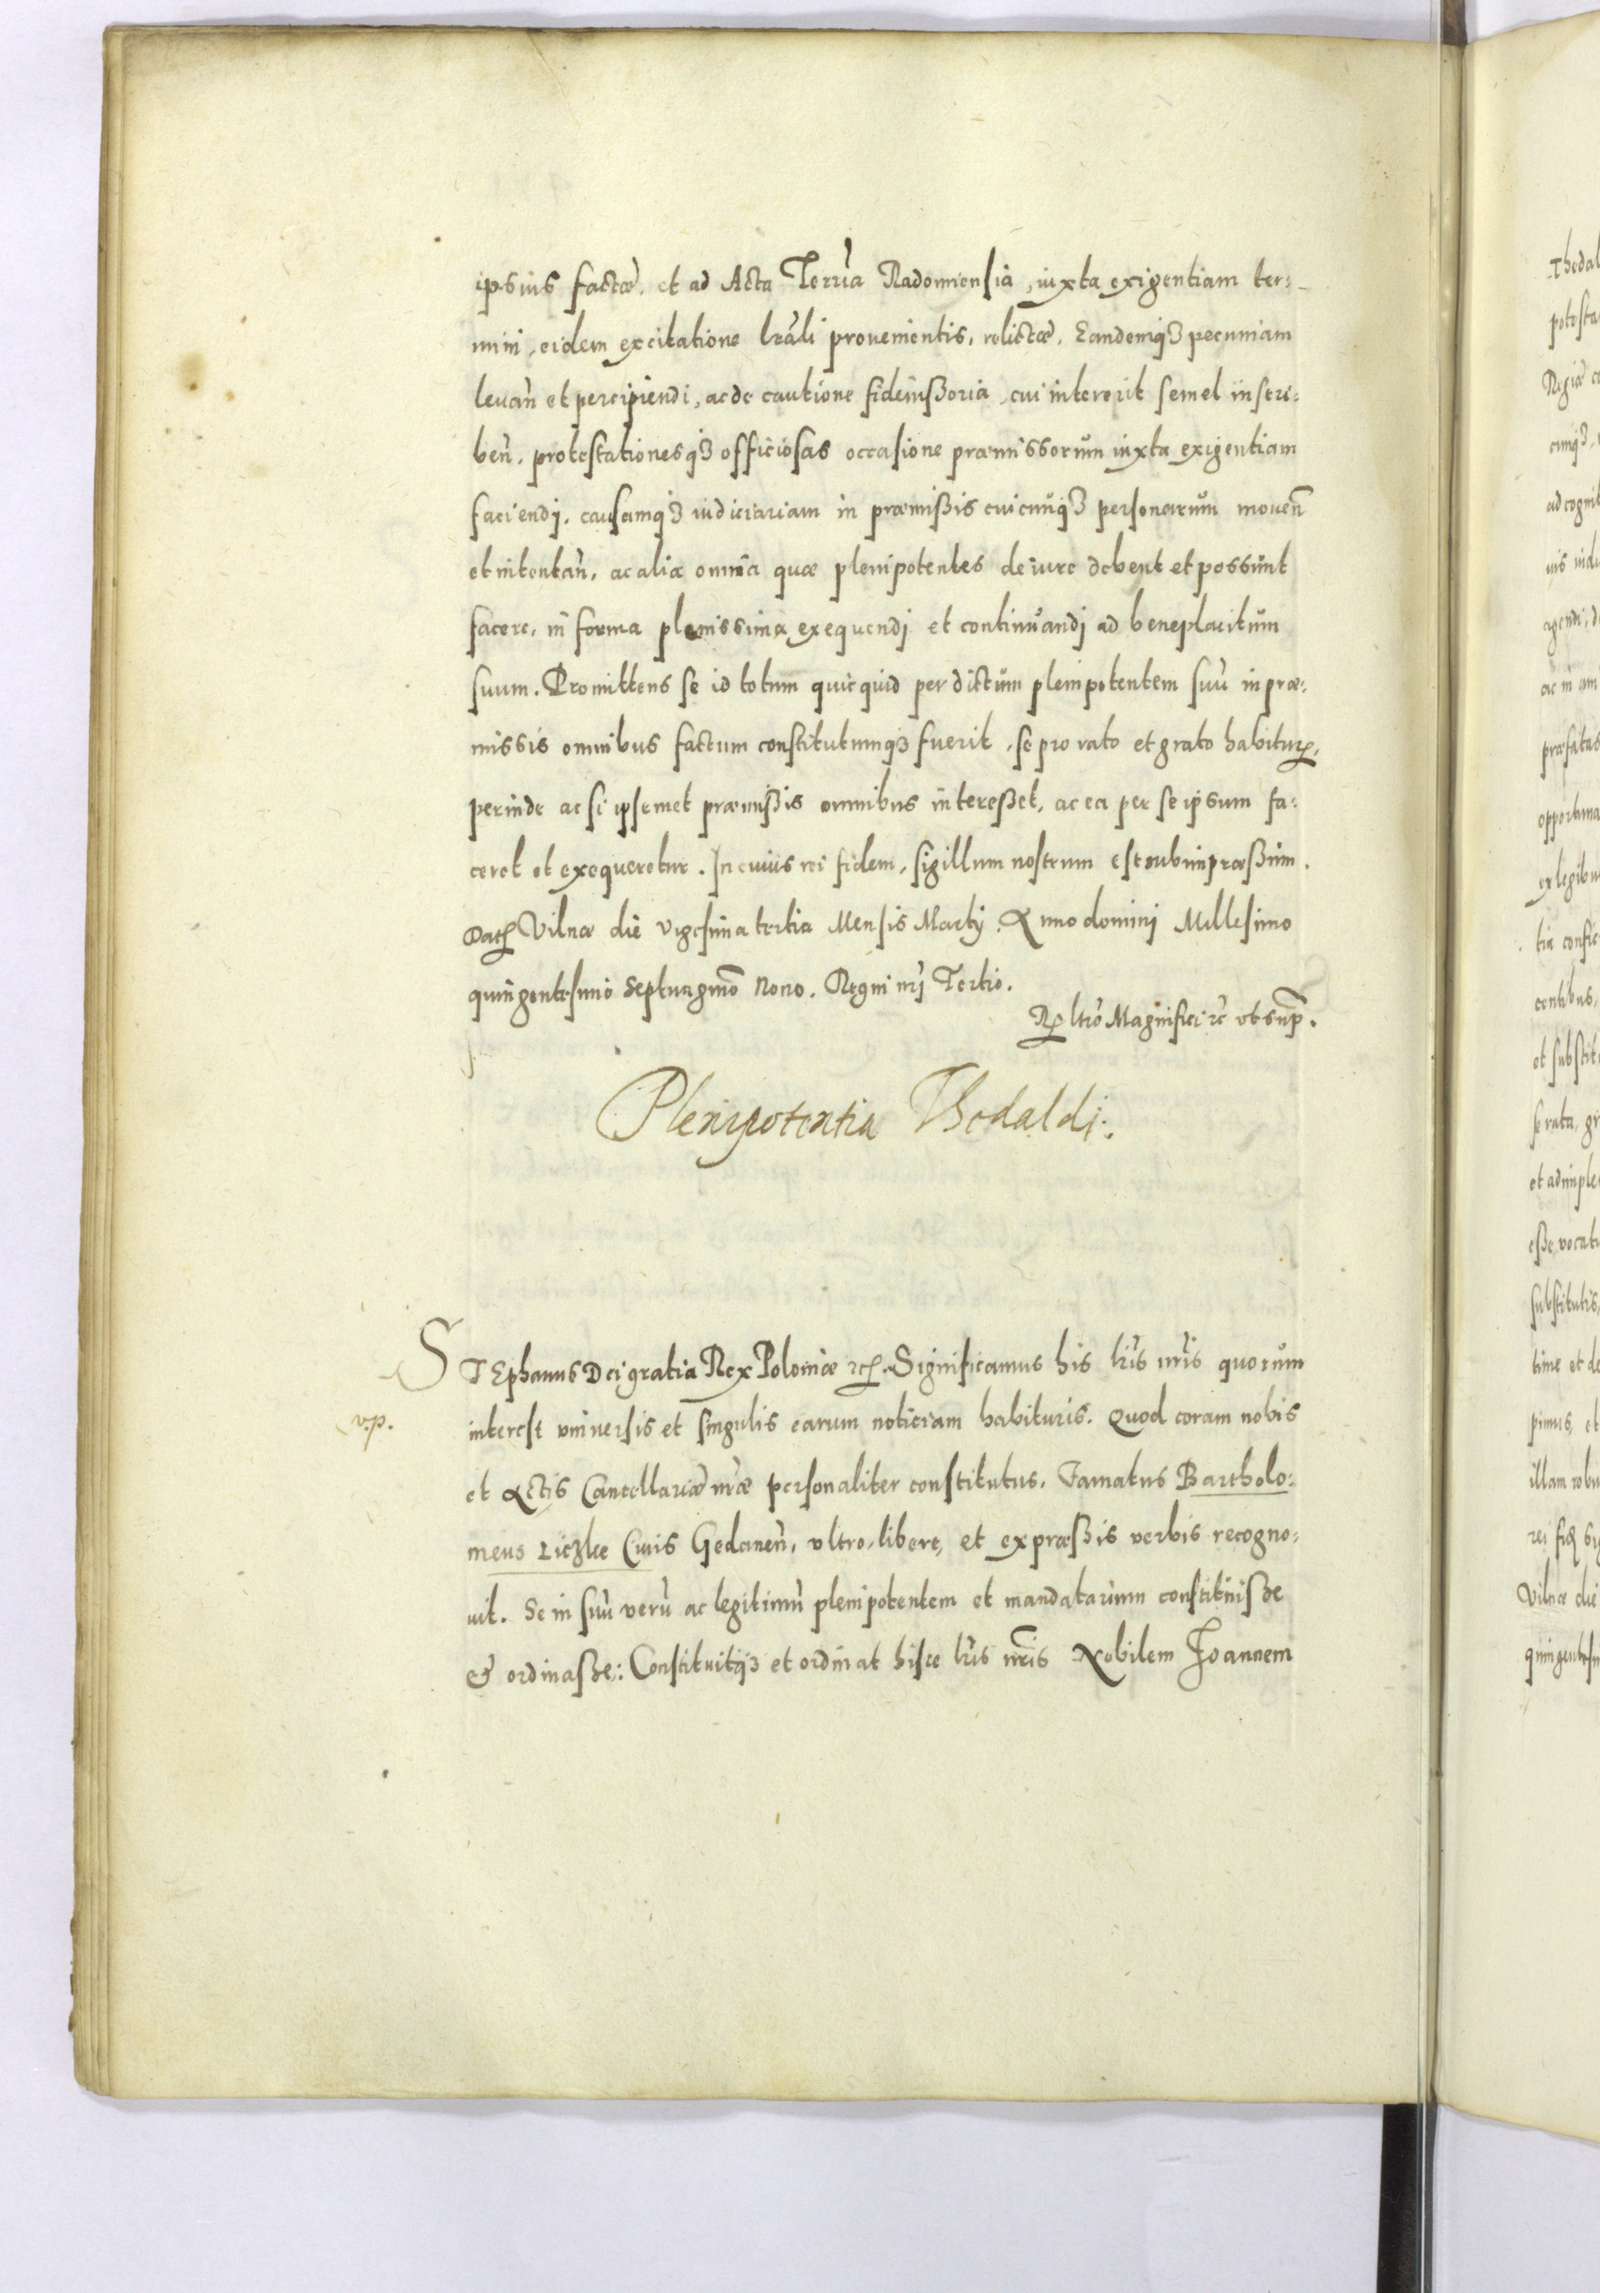 ipsius factæ, et ad Acta Terrīa Radomiensia, iuxta exigentiam ter:
mini, eidem excitatione lrāli prouenientis, relictæ. Eandemq3 pecuniam
leuan̄ et percipiendi, ac de cautione fideiußoria, cui intererit semel inscri:
ben̄. protestationesq3 officiosas occasione præmissorum iuxta exigentiam
faciendj. causamq3 iudiciariam in præmißis cuicunq3 personarum mouen̄
et intentan̄, ac alia omnia quæ plenipotentes de iure debent et possunt
facere, in forma plenissima exequendj et continuandj ad beneplacitum
suum. Promittens se id totum quicquid per dictum plenipotentem suū in præ:
missis omnibus factum constitutumq3 fuerit, se pro rato et grato habiturꝝ,
perinde ac si ipsemet præmißis omnibus intereßet, ac ea per se ipsum fa:
ceret et exequeretur. In cuius rei fidem, sigillum nostrum est subimpræßum.
Datꝭ Vilnæ die vigesima tertia Mensis Martij. Anno dominj Millesimo
quingentesimo Septuagmō Nono. Regni nrī Tertio.
Rꝑ ltiō Magnifici ꝛc̄ vt sup̄.
Plenipotentia Thedaldi.
STEphanus Dei gratia Rex Poloniæ ꝛcꝭ. Significamus his lrīs nrīs quorum
v.p.
interest vniuersis et singulis earum noticiam habituris. Quod coram nobis
et Actis Cancellariæ nrāe personaliter constitutus, Famatus Bartholo:
meus Liczke Ciuis Gedanen̄, vltro, libere, et expræßis verbis recogno:
uit. Se in suū verū ac legitimū plenipotentem et mandatarium constituiße
et ordinaße: Constituitq3 et ordinat hisce lrīs nrīs Nobilem Joannem